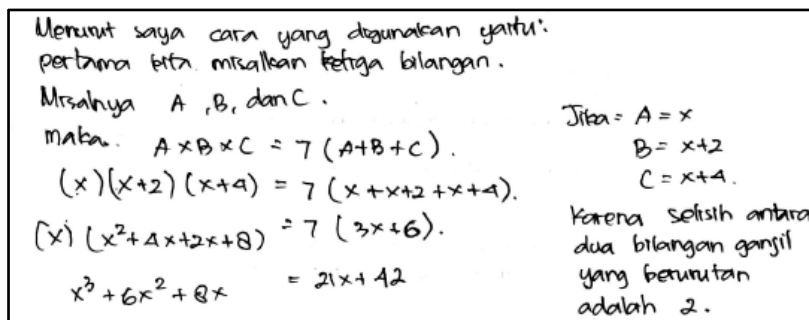 Menurut saya cara yang digunakan yaitu:
pertama kita misalkan ketiga bilangan.
Misalnya A, B, dan C.
maka. A×B×C = 7 (A+B+C).
(x)(x+2)(x+4) = 7 (x+x+2+x+4).
(x) (x²+4x+2x+8) = 7 (3x+6).
x³+6x²+8x = 21x+42
Jika = A = x
B = x+2
C = x+4.
Karena selisih antara
dua bilangan ganjil
yang berurutan
adalah 2.